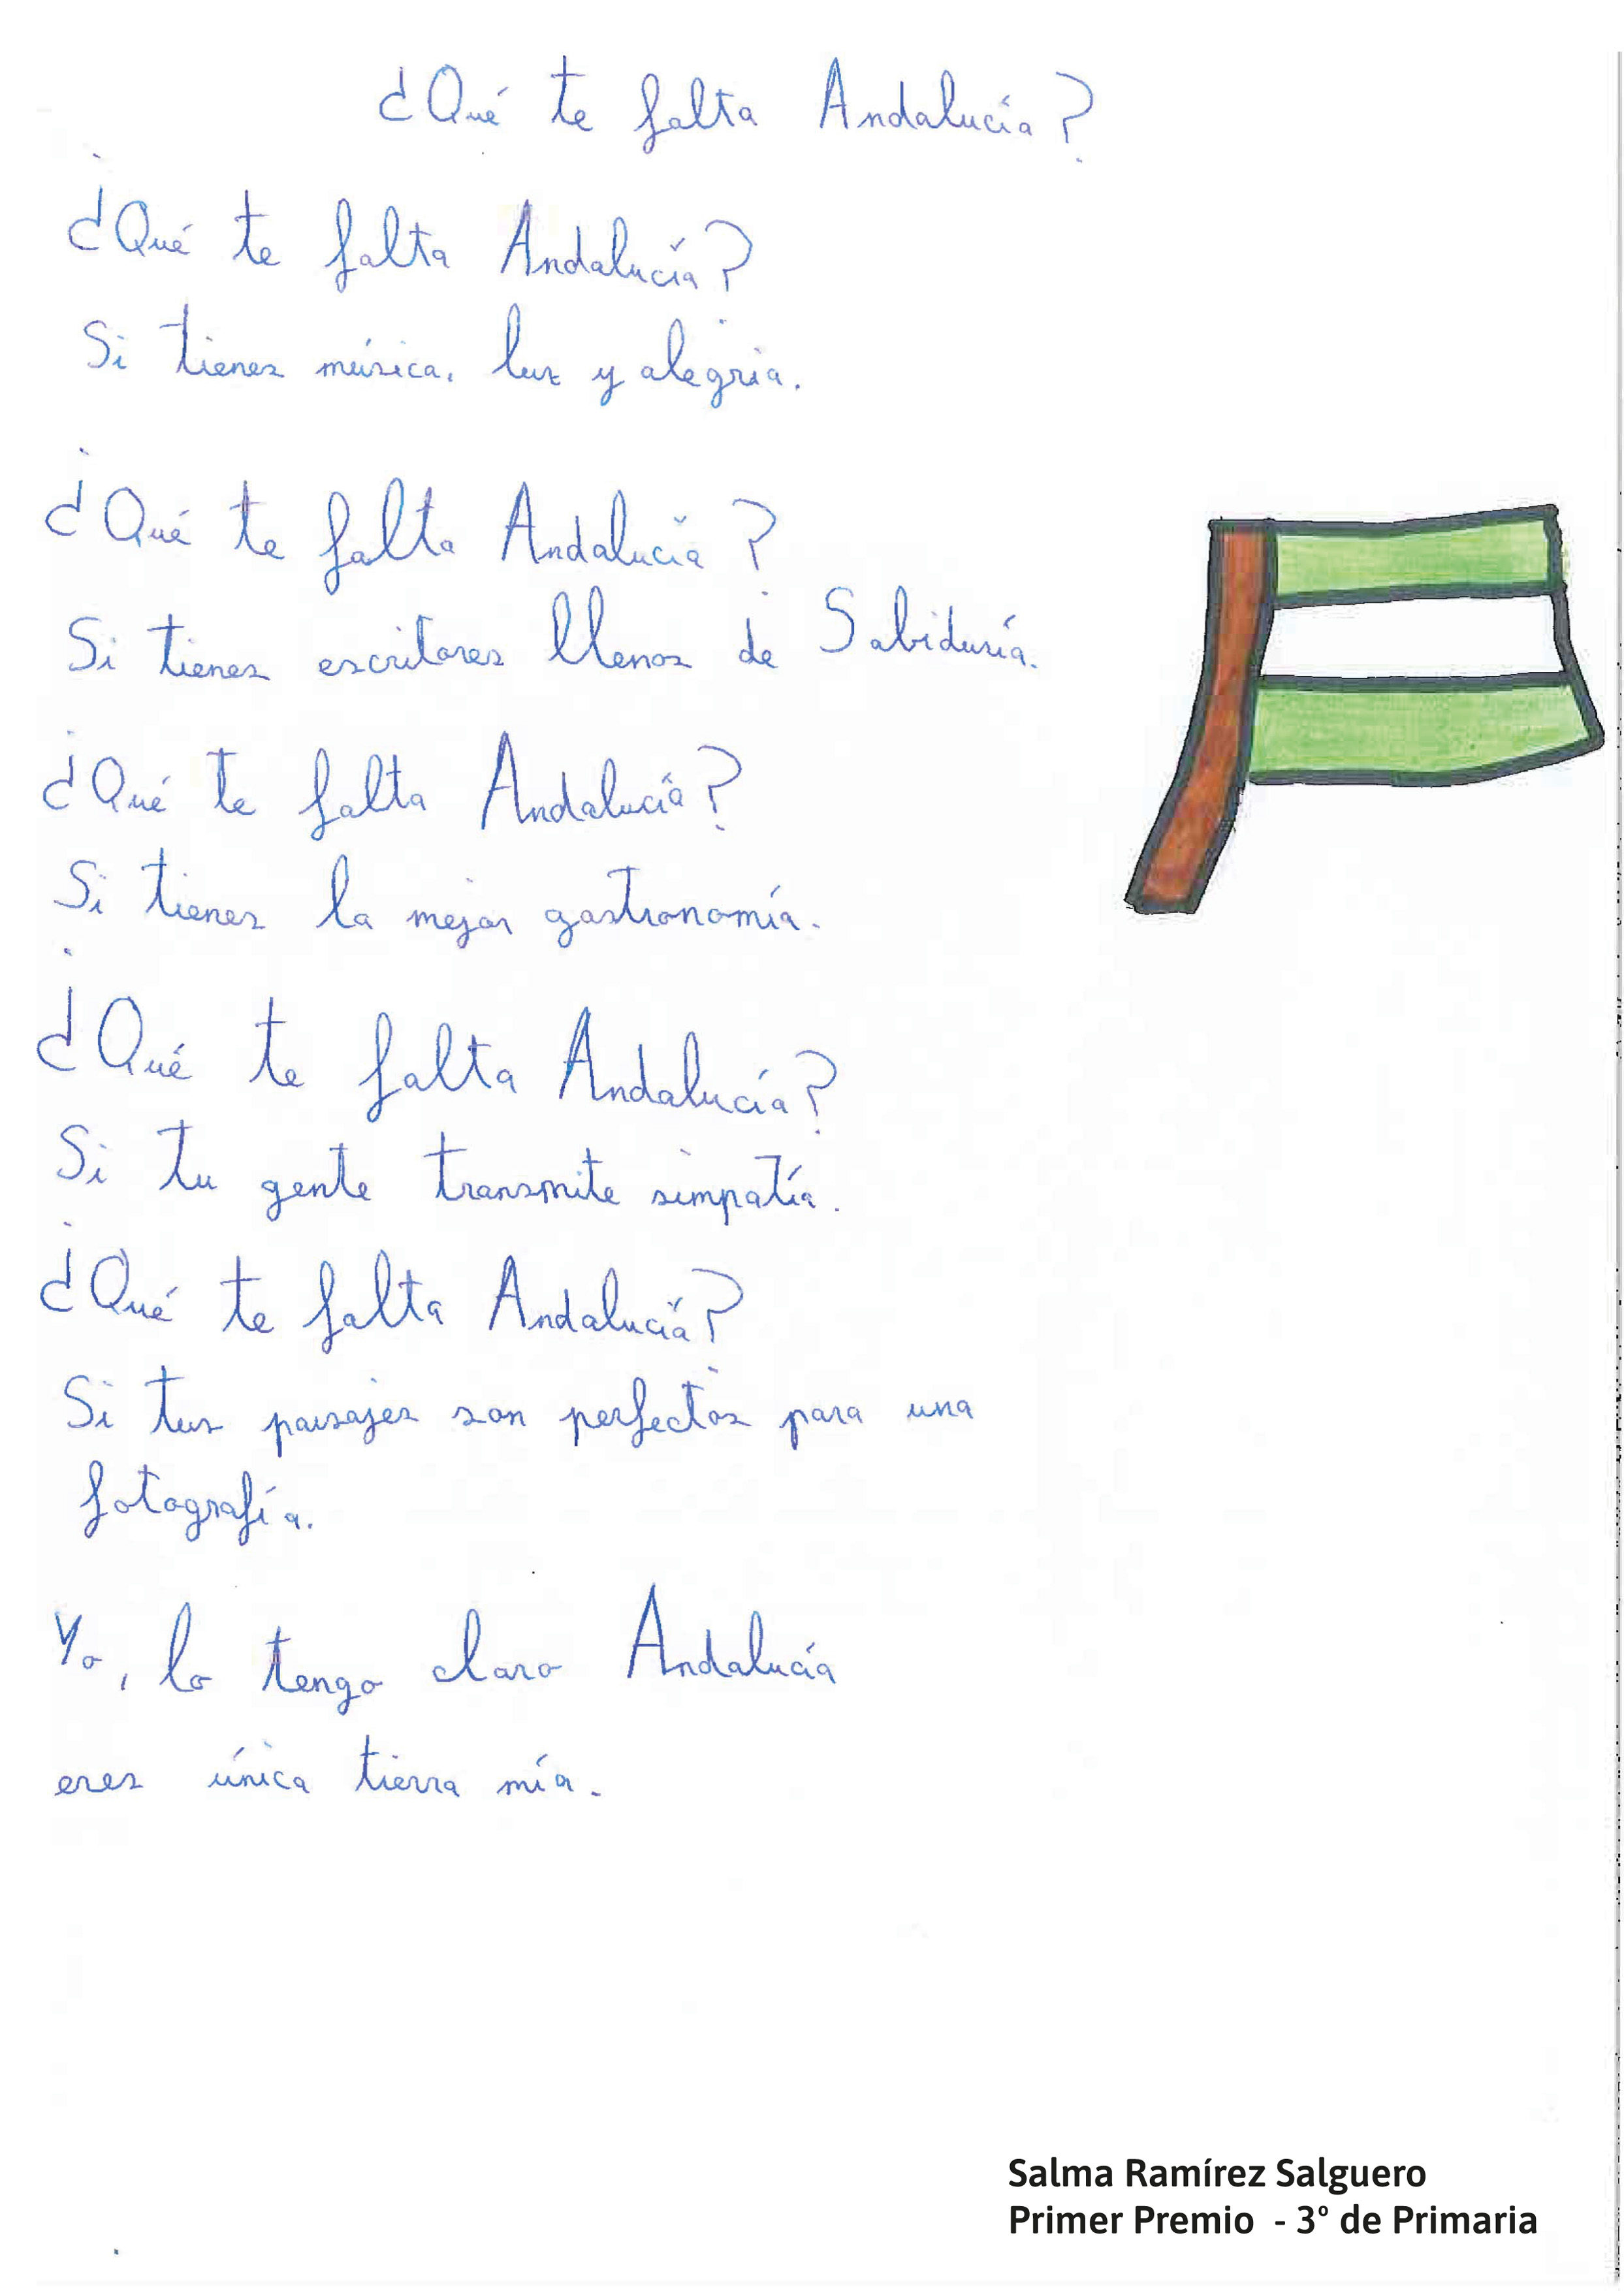 ¿Qué te falta Andalucía?
¿Qué te falta Andalucía?
Si tienes música, luz y alegría.
¿Qué te falta Andalucía?
Si tienes escritores llenos de Sabiduría.
¿Qué te falta Andalucía?
Si tienes la mejor gastronomía.
¿Qué te falta Andalucía?
Si tu gente transmite simpatía.
¿Qué te falta Andalucía?
Si tus paisajes son perfectos para una
fotografía.
Yo, lo tengo claro Andalucía
eres única tierra mía.
Salma Ramírez Salguero
Primer Premio - 3º de Primaria